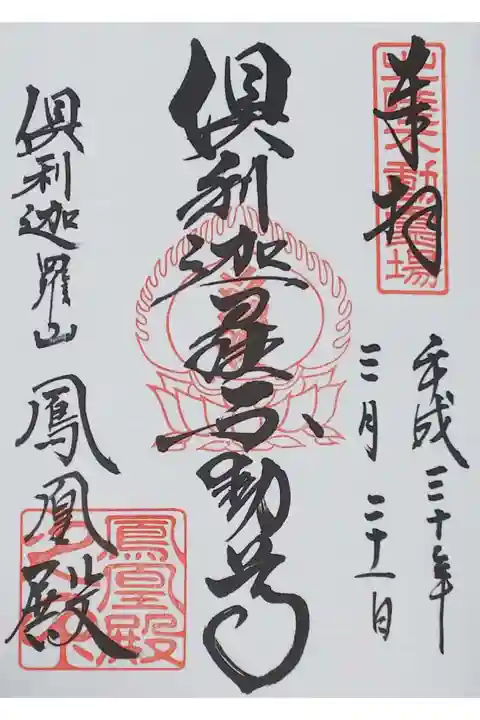 奉拝
平成三十年
三月二十一日
倶利迦羅不動尊
倶利迦羅山
鳳凰殿
鳳凰殿